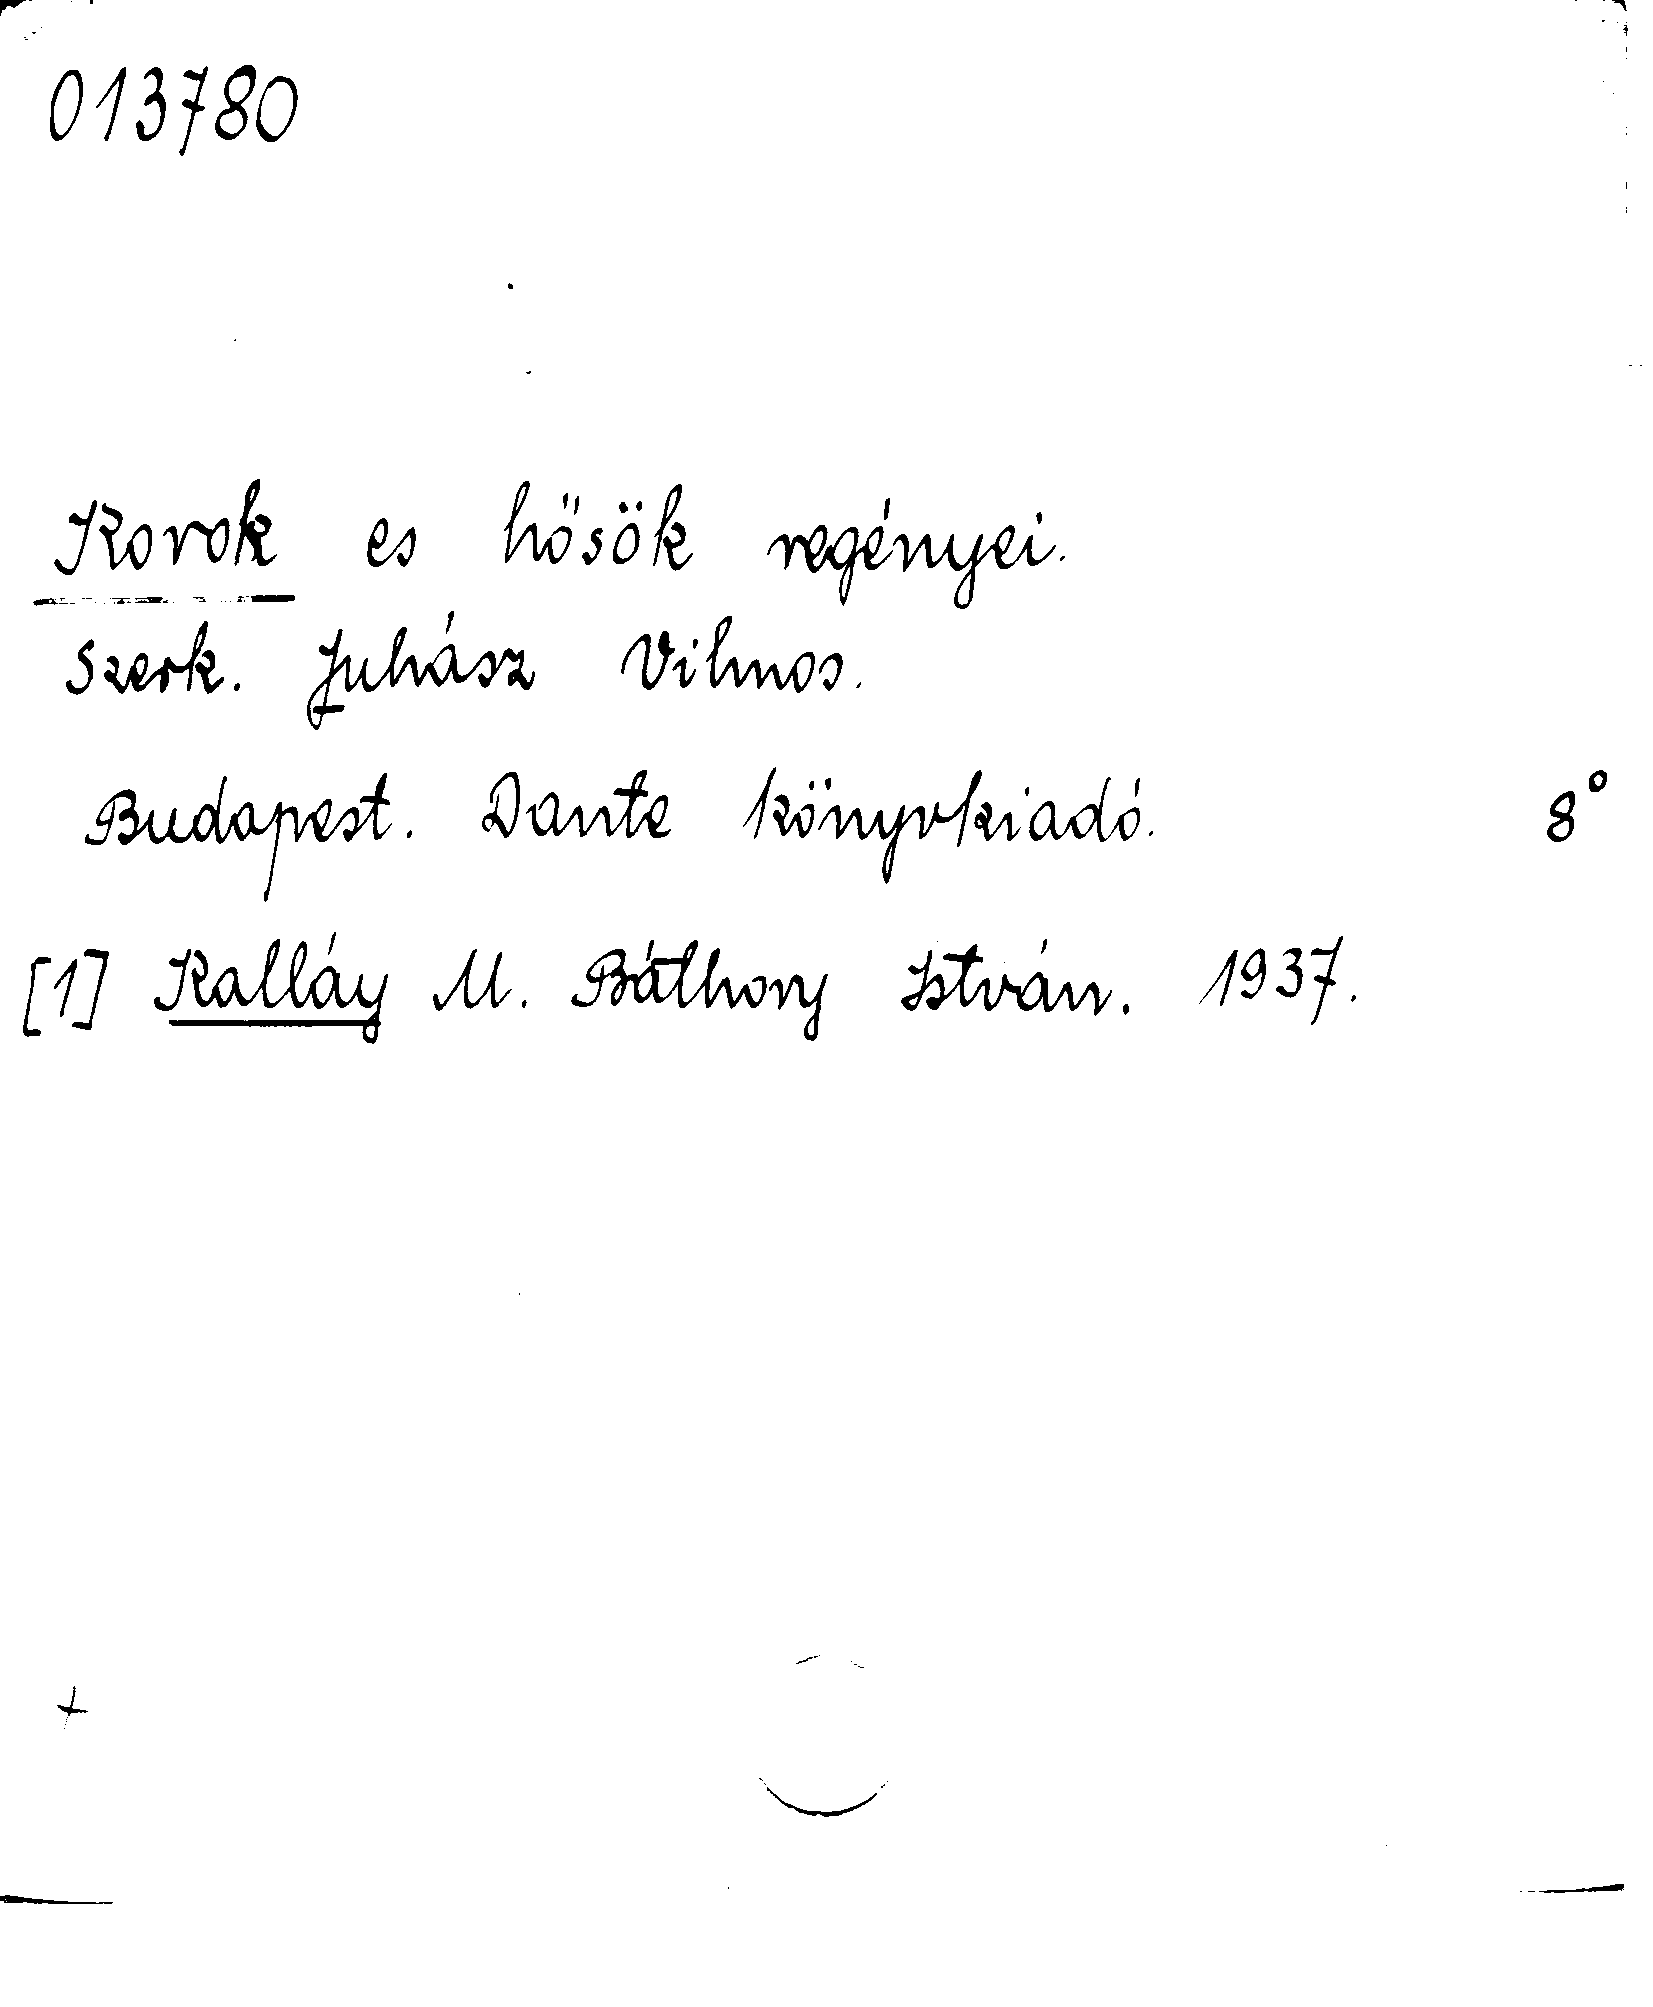 013780
Korok es hősök regényei.
Szerk. Juhász Vilmos.
Budapest. Dante könyvkiadó. 8°
[1] Kalláy M. Báthory István. 1937.
+